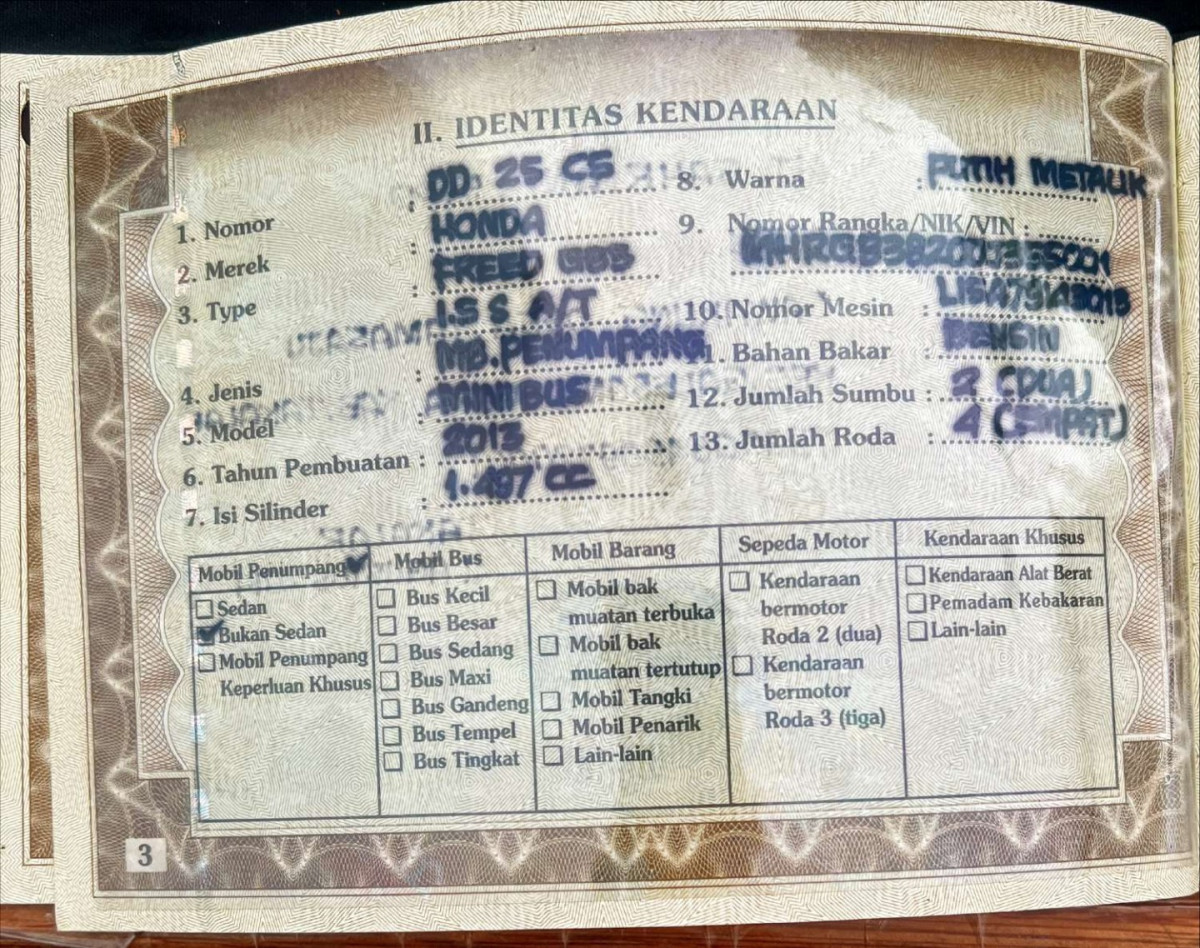 II. IDENTITAS KENDARAAN
1. Nomor : DD 25 CS
2. Merek : HONDA
3. Type : FREED GB3
1.5 S A/T
4. Jenis : MB.PENUMPANG
5. Model : MINIBUS
6. Tahun Pembuatan : 2013
7. Isi Silinder : 1.497 CC
8. Warna : PUTIH METALIK
9. Nomor Rangka/NIK/VIN :
10. Nomor Mesin :
11. Bahan Bakar : BENSIN
12. Jumlah Sumbu : 2 (DUA)
13. Jumlah Roda : 4 (EMPAT)
Mobil Penumpang
Sedan
Bukan Sedan
Mobil Penumpang
Keperluan Khusus
Mobil Bus
Bus Kecil
Bus Besar
Bus Sedang
Bus Maxi
Bus Gandeng
Bus Tempel
Bus Tingkat
Mobil Barang
Mobil bak
muatan terbuka
Mobil bak
muatan tertutup
Mobil Tangki
Mobil Penarik
Lain-lain
Sepeda Motor
Kendaraan
bermotor
Roda 2 (dua)
Kendaraan
bermotor
Roda 3 (tiga)
Kendaraan Khusus
Kendaraan Alat Berat
Pemadam Kebakaran
Lain-lain
3